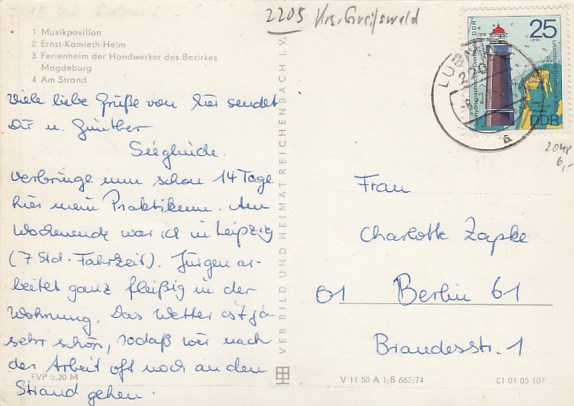 2205 Krs. Greifswald
1 Musikpavillon
2 Ernst-Kamieth-Heim
3 Ferienheim der Handwerker des Bezirkes
Magdeburg
4 Am Strand
Viele liebe Grüße von hier sendet
Dir u. Günther
Sieglinde.
Verbringe nun schon 14 Tage
hier mein Praktikum. Am
Wochenende war ich in Leipzig
(7 Std. Fahrzeit). Jürgen ar-
beitet ganz fleißig in der
Wohnung. Das Wetter ist ja
sehr schön, sodaß wir nach
der Arbeit oft noch an den
Strand gehen.
EVP 0,20 M
VEB BILD UND HEIMAT REICHENBACH I. V.
25
DDR
LUBMIN
220
a
6,-
Frau
Charlotte Zapke
01 Berlin 61
Brandesstr. 1
V 11 50 A 1/B 662/74
C1 01 05 107